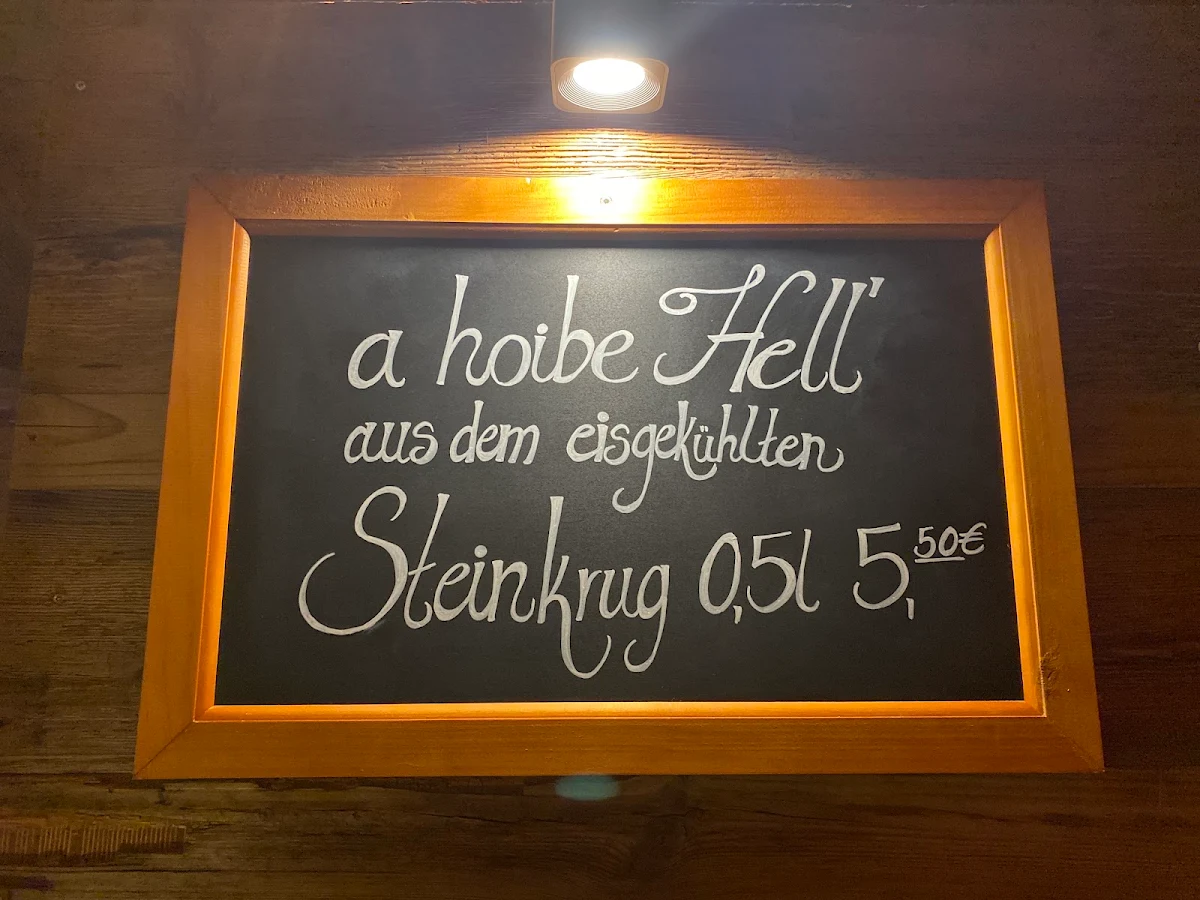 a hoibe Hell'
aus dem eisgekühlten
Steinkrug 0,5l 5,50€